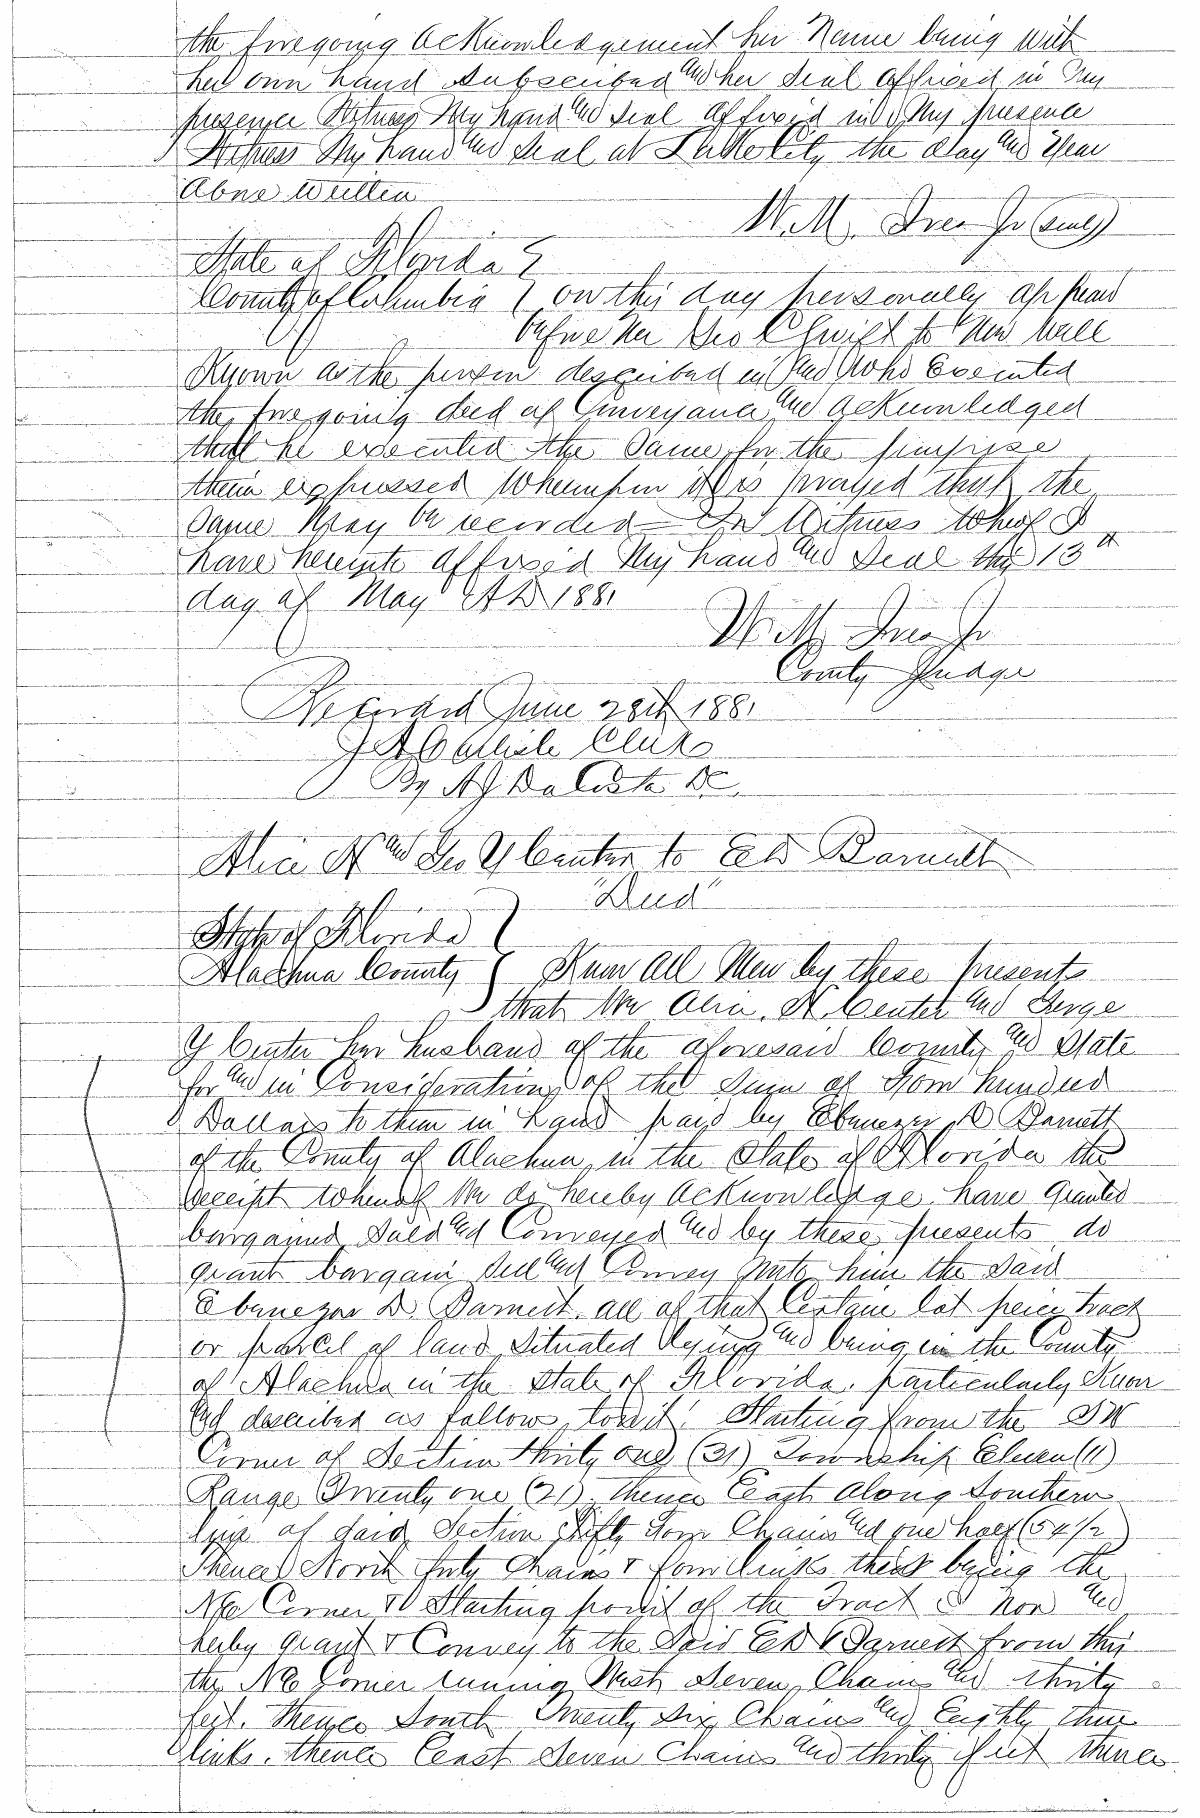 the foregoing acKnowledgement her Name being with
her own hand subscribed and her seal affixed in my
presence Witness My hand and seal affixed in My presence
Witness My hand and seal at Lake City the day and year
above written
W. M. Ives Jr (seal)
State of Florida
County of Columbia } on this day personally appeard
before me Geo C Swift to me well
Known as the person described in and who Executed
the foregoing deed of Conveyance and acKnowledged
that he executed the same for the purpose
therein expressed whereupon it is prayed that the
same May be recorded In Witness whereof I
have hereunto affixed My hand and seal this 13th
day of May AD 1881
W. M. Ives Jr
County Judge
Recorded June 28th 1881
J A Carlisle Clerk
By A J DaCosta DC.
Alice N and Geo Y Center to ED Barnett
"Deed"
State of Florida
Alachua County } Know All Men by these presents
that We Alice N. Center and George
Y Center her husband of the aforesaid County and State
for and in Consideration of the sum of Four hundred
Dollars to them in hand paid by Ebenezer D Barnett
of the County of Alachua in the State of Florida the
receipt whereof We do hereby acKnowledge have granted
bargained Sold and Conveyed and by these presents do
grant bargain sell and Convey unto him the said
Ebenezer D. Barnett. all of that Certain lot peice tract
or parcel of land situated lying and being in the County
of Alachua in the State of Florida. particularly Known
and described as follows, towit: Starting from the SW
Corner of Section thirty one (31) Township Eleven (11)
Range Twenty one (21). thence East along southern
line of said section fifty four Chains and one half (54 1/2)
Thence North forty Chains & four links thence being the
NE Corner & Starting point of the Tract I now and
herby grant & Convey to the said ED Barnett from this
the NE Corner running West Seven Chains and thirty
feet. thence South Twenty six Chains and Eighty three
links. thence East Seven Chains and thirty feet thence